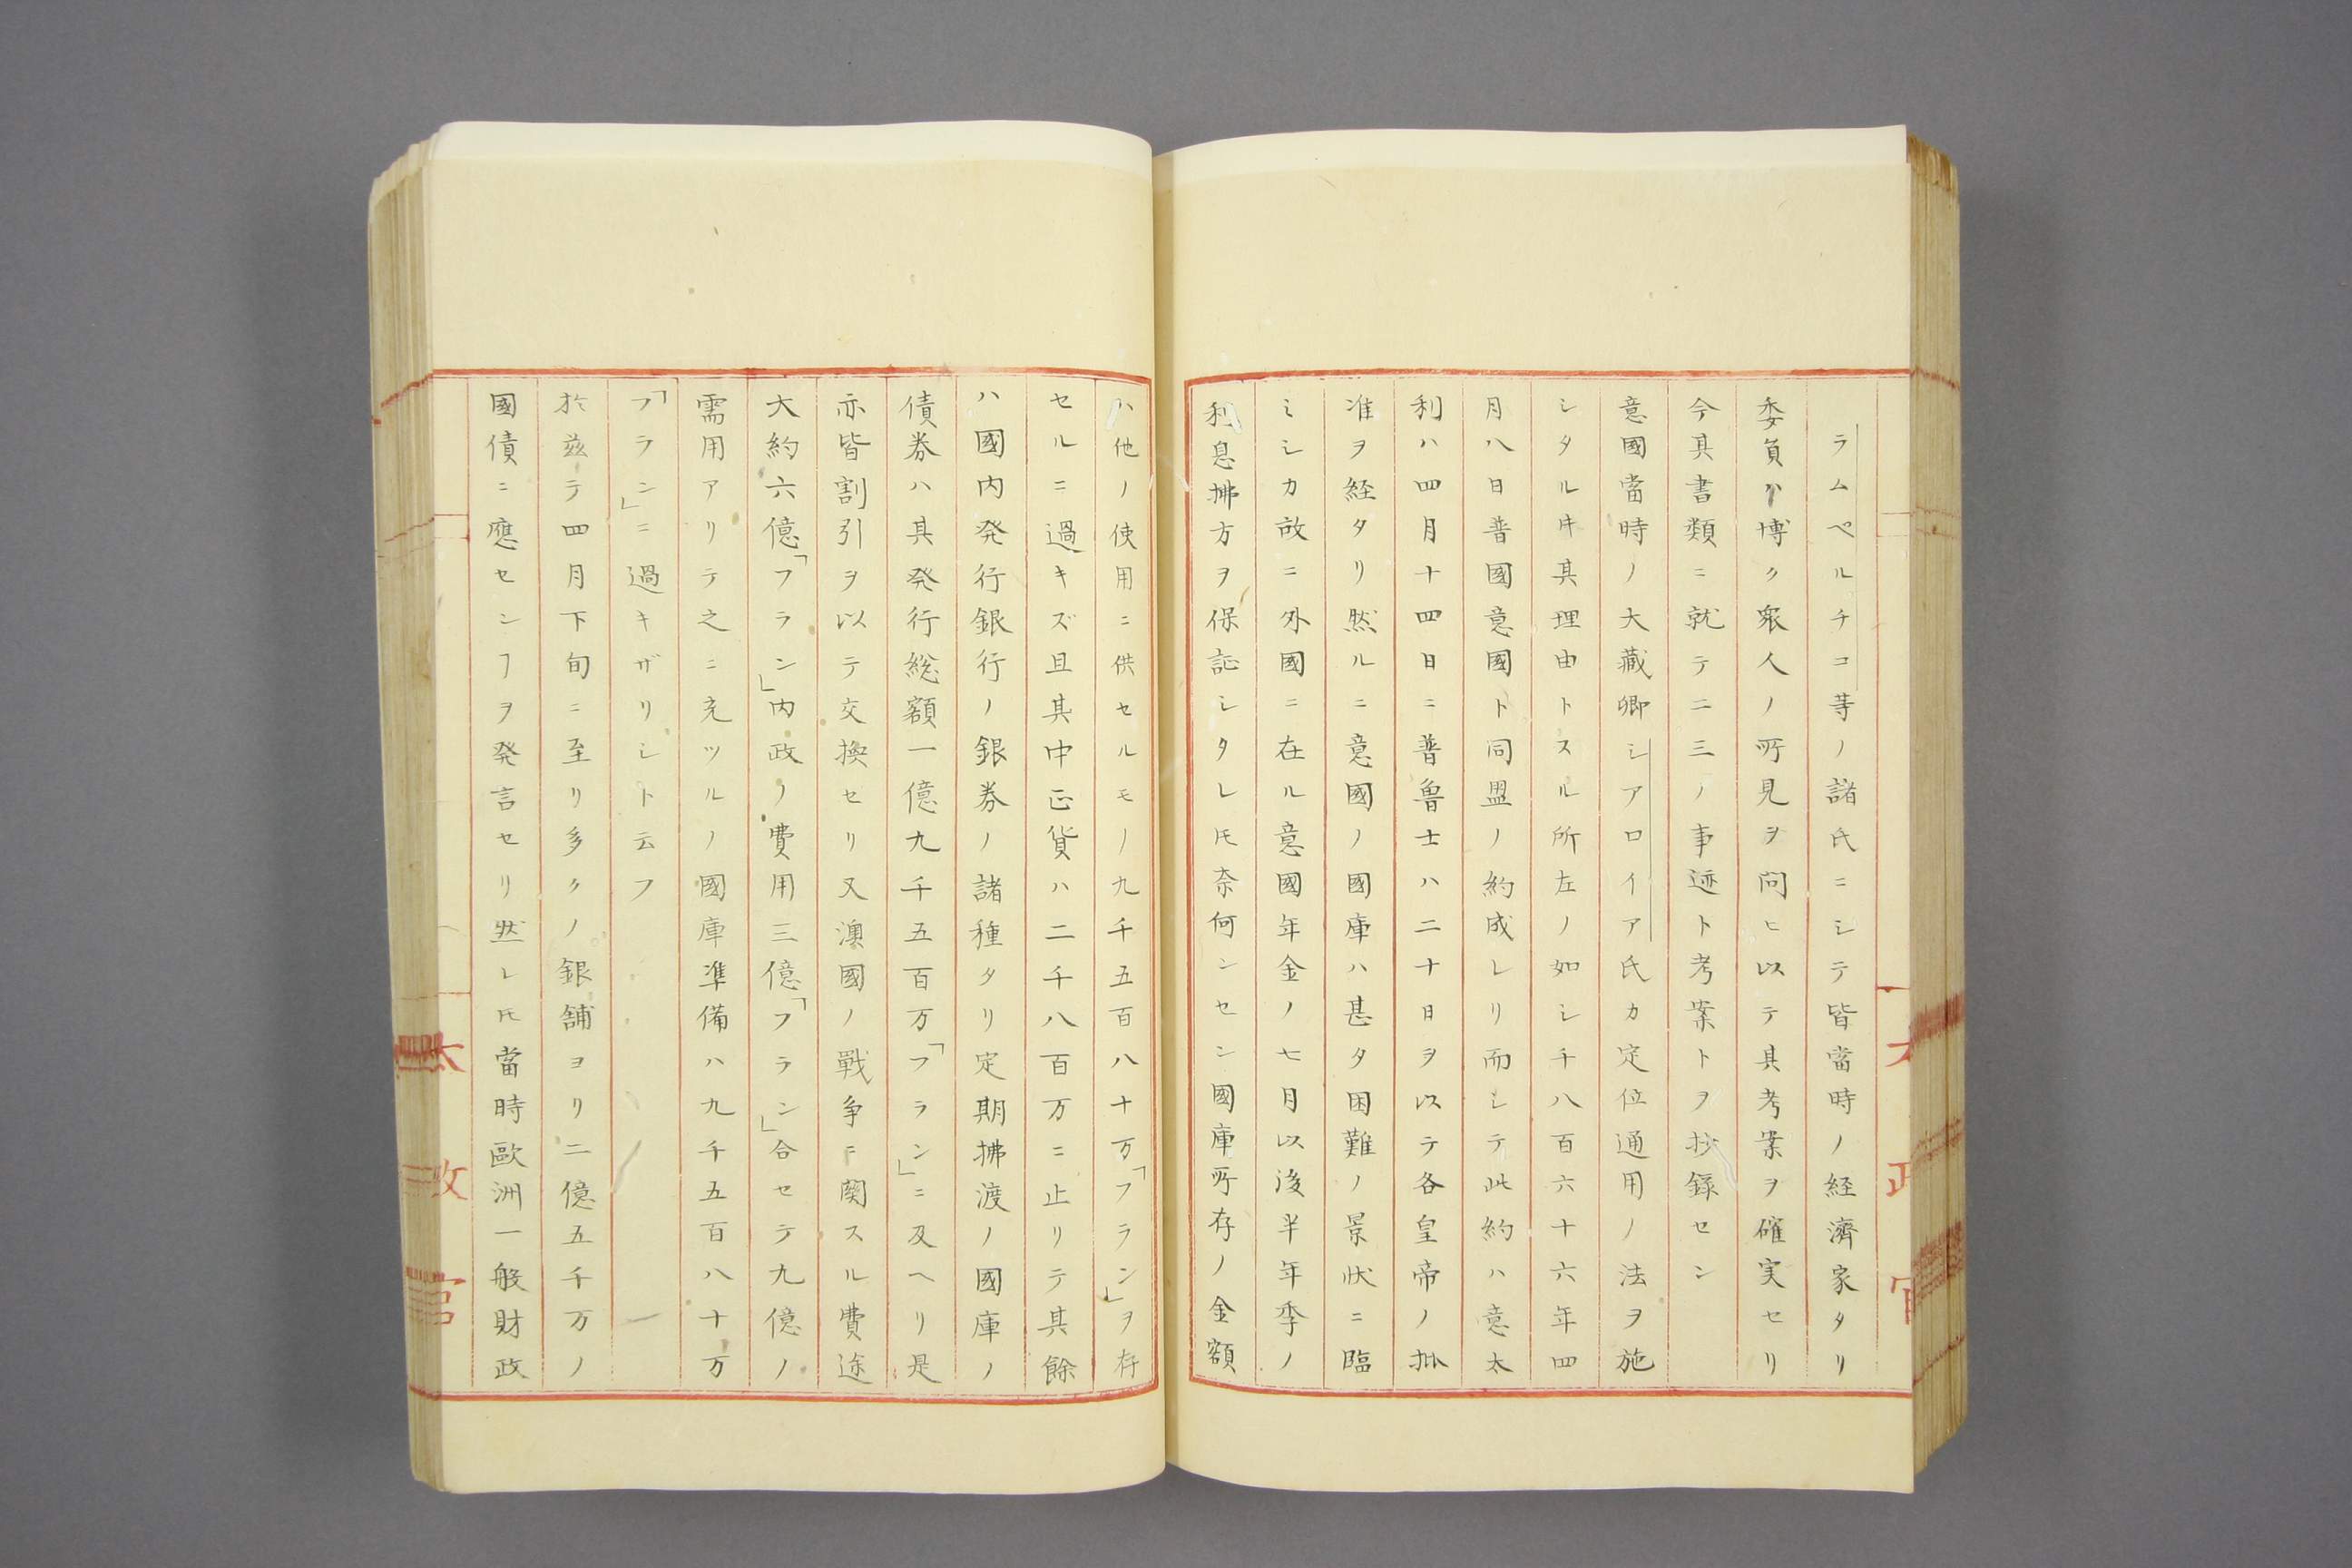 ラムペルチコ等ノ諸氏ニシテ皆當時ノ経濟家タリ
委員ハ博ク衆人ノ所見ヲ問ヒ以テ其考案ヲ確実セリ
今其書類ニ就テ二三ノ事迹ト考案トヲ抄録セン
意國當時ノ大藏卿シアロイア氏カ定位通用ノ法ヲ施
シタルヰ其理由トスル所左ノ如シ千八百六十六年四
月八日普國意國ト同盟ノ約成レリ而シテ此約ハ意太
利ハ四月十四日ニ普魯士ハ二十日ヲ以テ各皇帝ノ批
准ヲ経タリ然ルニ意國ノ國庫ハ甚タ困難ノ景状ニ臨
ミシカ故ニ外國ニ在ル意國年金ノ七月以後半年季ノ
利息拂方ヲ保証シタレ𪜈奈何ンセン國庫所存ノ金額
ハ他ノ使用ニ供セルモノ九千五百八十万「フラン」ヲ存
セルニ過キズ且其中正貨ハ二千八百万ニ止リテ其餘
ハ國内発行銀行ノ銀券ノ諸種タリ定期拂渡ノ國庫ノ
債券ハ其発行総額一億九千五百万「フラン」ニ及ヘリ是
亦皆割引ヲ以テ交換セリ又澳國ノ戰争ニ関スル費途
大約六億「フラン」内政ノ費用三億「フラン」合セテ九億ノ
需用アリテ之ニ充ツルノ國庫準備ハ九千五百八十万
「フラン」ニ過キザリシト云フ
於茲テ四月下旬ニ至リ多クノ銀舗ヨリ二億五千万ノ
國債ニ應センヿヲ発言セリ然レ𪜈當時歐洲一般財政
太政官
太政官